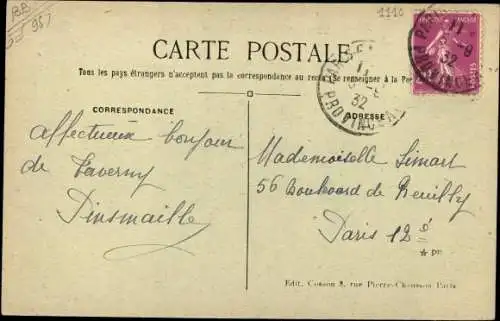 BB
957
1110
CARTE POSTALE
Tous les pays étrangers n'acceptent pas la correspondance au recto (Se renseigner à la Po
CORRESPONDANCE
ADRESSE
affectueux bonjour
de Taverny
Mademoiselle Simart
56 Boulevard de Reuilly
Paris 12
Edit. rue Pierre-Chausson Paris
11
32
PROVINCE